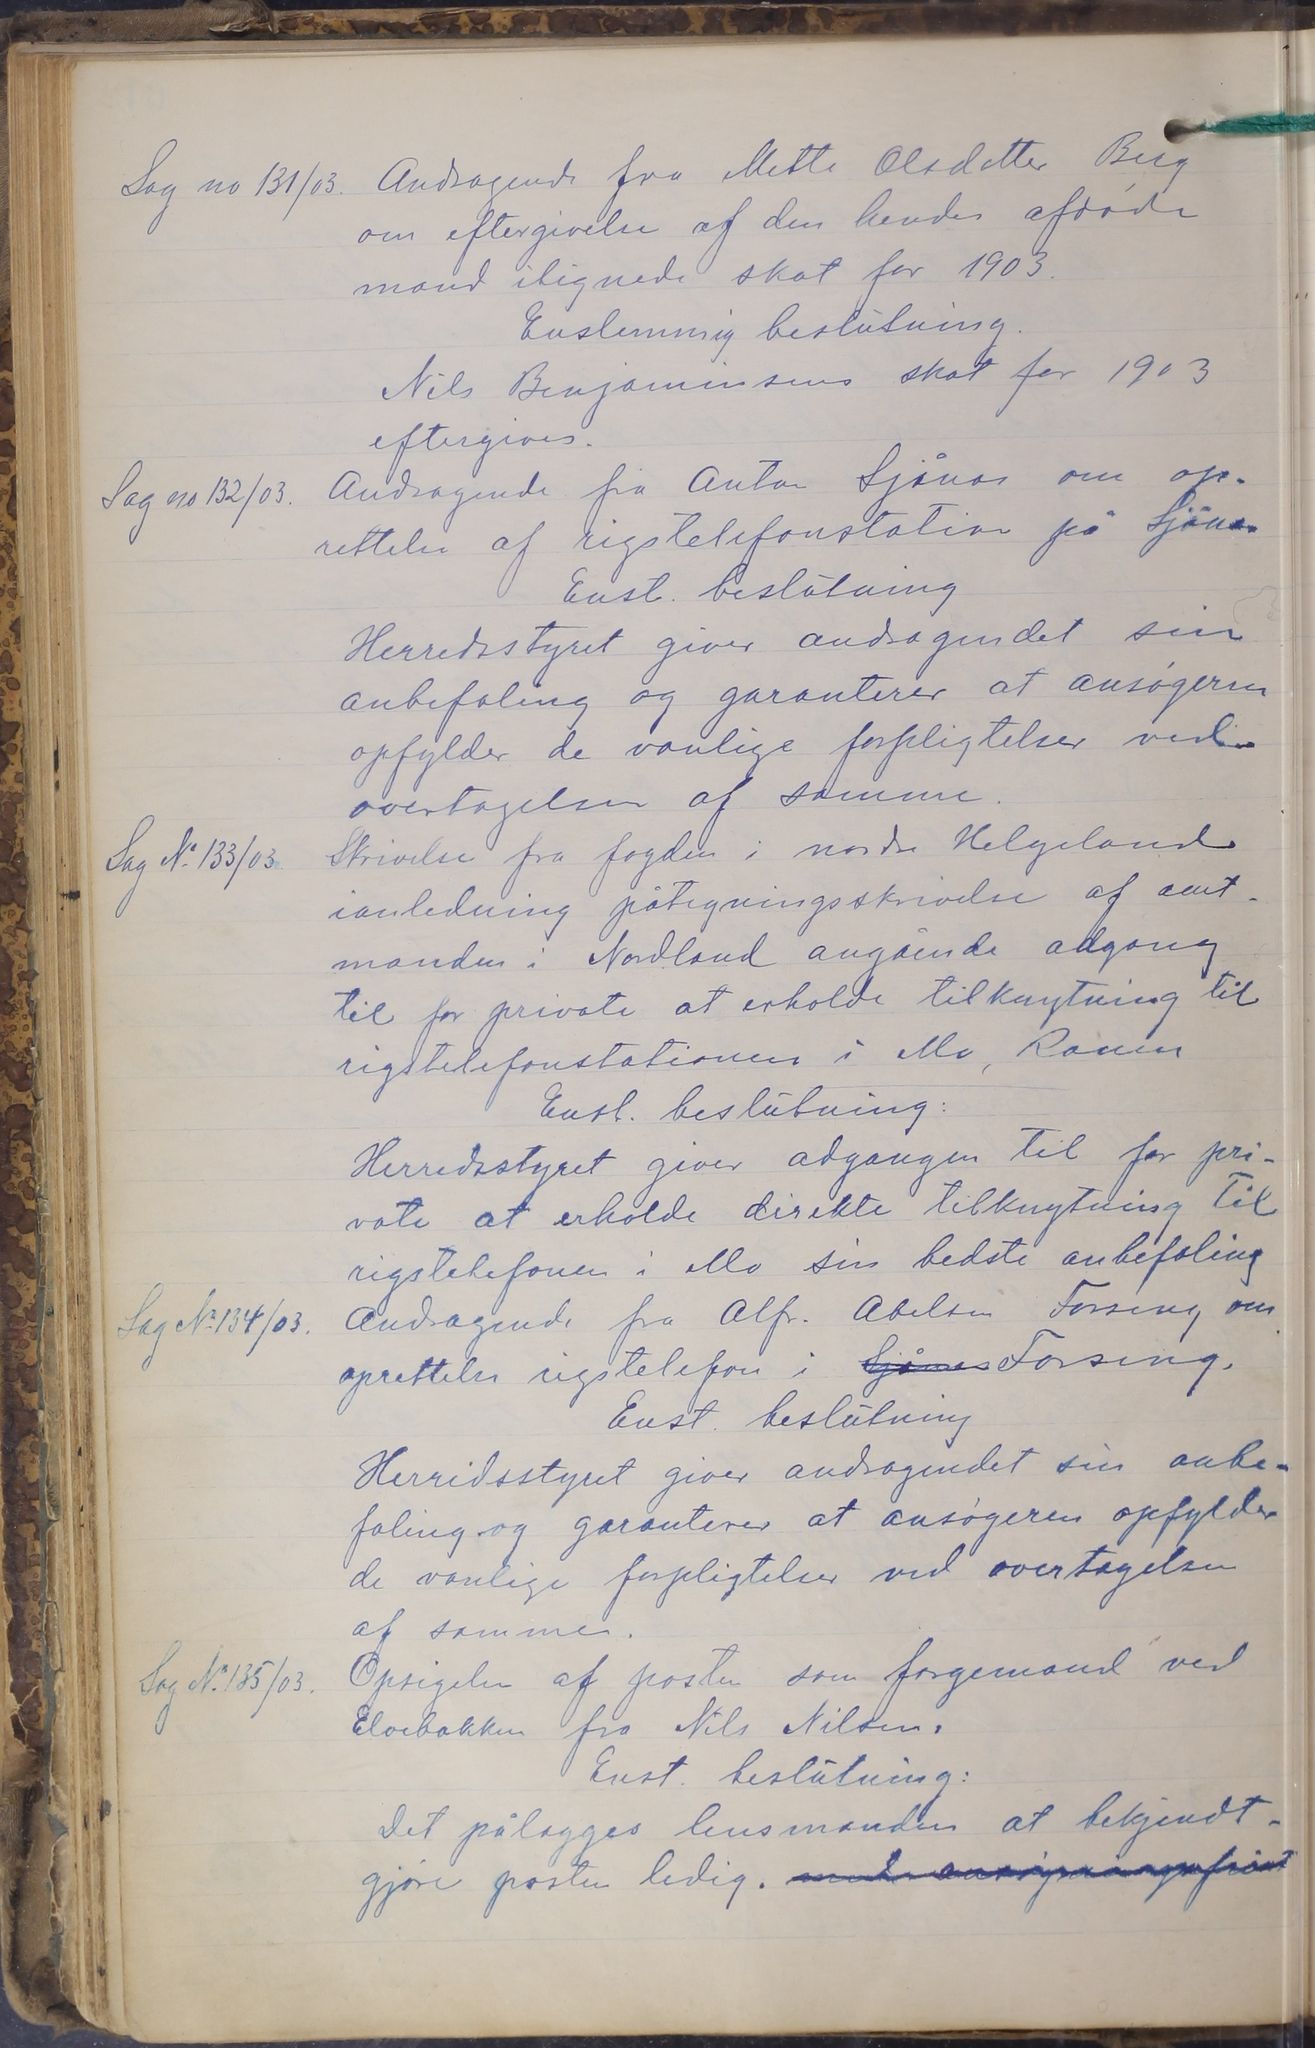 Sag no 131/03. Andragende fra Mette Olsdatter Berg
om eftergivelse af den hendes afdøde
mand ilignede skat for 1903.
Enstemmig beslutning.
Nils Benjaminsens skat for 1903
eftergives.
Sag no 132/03. Andragende fra Anton Sjånes om op-
rettelse af rigstelefonstation på Sjånes
Enst. beslutning
Herredsstyret giver andragendet sin
anbefaling og garanterer at ansøgeren
opfylder de vanlige forpligtelser ved
overtagelsen af samme.
Sag No 133/03 Skrivelse fra fogden i nordre Helgeland
ianledning påtegningsskrivelse af amt-
manden i Nordland angående adgang
til for private at erholde tilknytning til
rigstelefonstationen i Mo, Ranen
Enst. beslutning:
Herredsstyret giver adgangen til for pri-
vate at erholde direkte tilknytning til
rigstelefonen i Mo sin bedste anbefaling
Sag No 134/03. Andragende fra Alfr. Abelsen Forseng om
oprettelse rigstelefon i Sjånes Forseng.
Enst. beslutning
Herridsstyret giver andragendet sin anbe-
faling og garanterer at ansøgeren opfylder
de vanlige forpligtelser ved overtagelsen
af samme.
Sag No 135/03. Opsigelse af posten som færgemand ved
Elvebakken fra Nils Nilsen.
Enst. beslutning:
Det pålægges lensmanden at bekjendt-
gjøre posten ledig. med ansøgningsfrist